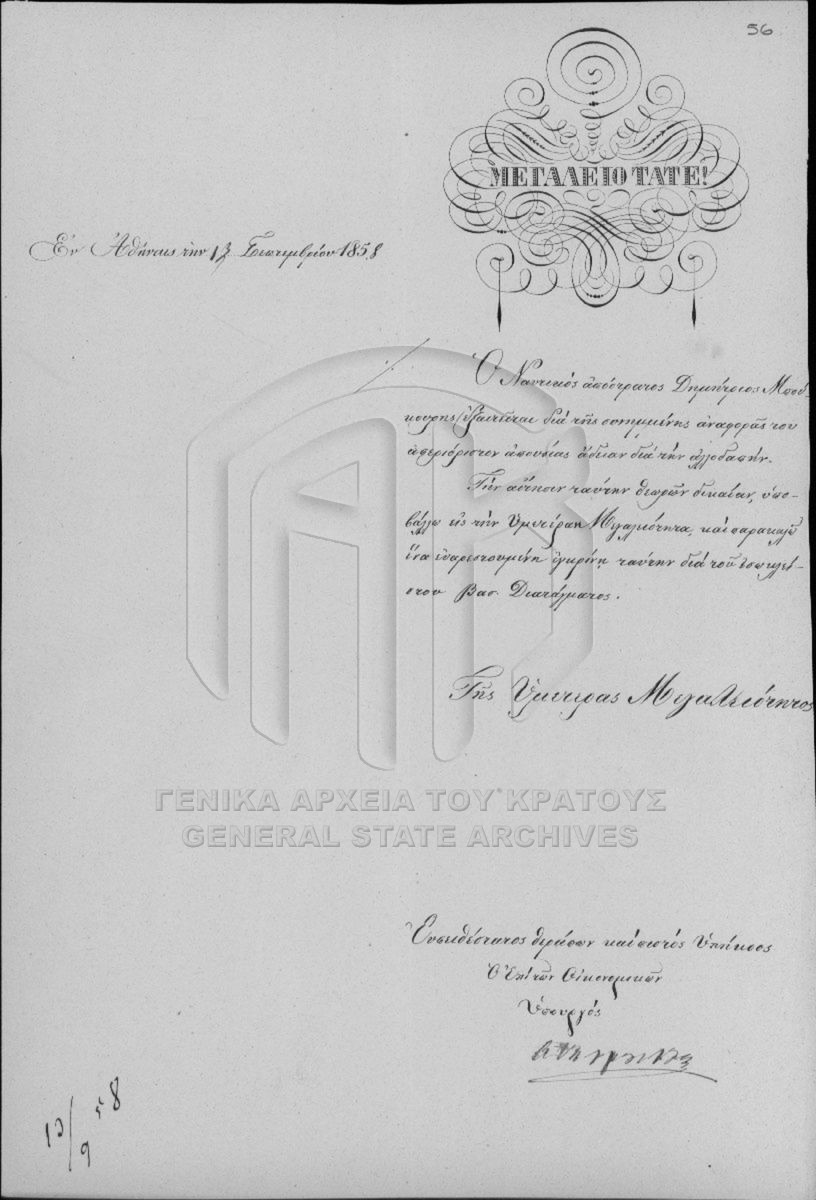 56
ΜΕΓΑΛΕΙΟΤΑΤΕ!
Ἐν Ἀθήναις τὴν 13 Σεπτεμβρίου 1858
Ὁ Ναυτικὸς ἀπόστρατος Δημήτριος Μπού-
κουρης ἐξαιτεῖται διὰ τῆς συνημμένης ἀναφορᾶς του
ἀπεριόριστον ἀπουσίας ἄδειαν διὰ τὴν ἀλλοδαπήν.
Τὴν αἴτησιν ταύτην θεωρῶν δικαίαν, ὑπο-
βάλλω εἰς τὴν Ὑμετέραν Μεγαλειότητα, καὶ παρακαλῶ
ἵνα εὐαρεστουμένη ἐγκρίνῃ ταύτην διὰ τοῦ ἐσωκλεί-
στου Βασ. Διατάγματος.
Τῆς Ὑμετέρας Μεγαλειότητος
ΓΕΝΙΚΑ ΑΡΧΕΙΑ ΤΟΥ ΚΡΑΤΟΥΣ
GENERAL STATE ARCHIVES
Εὐπειθέστατος θεράπων καὶ πιστὸς Ὑπήκοος
Ὁ Ἐπὶ τῶν Οἰκονομικῶν
Ὑπουργός
13/9 58